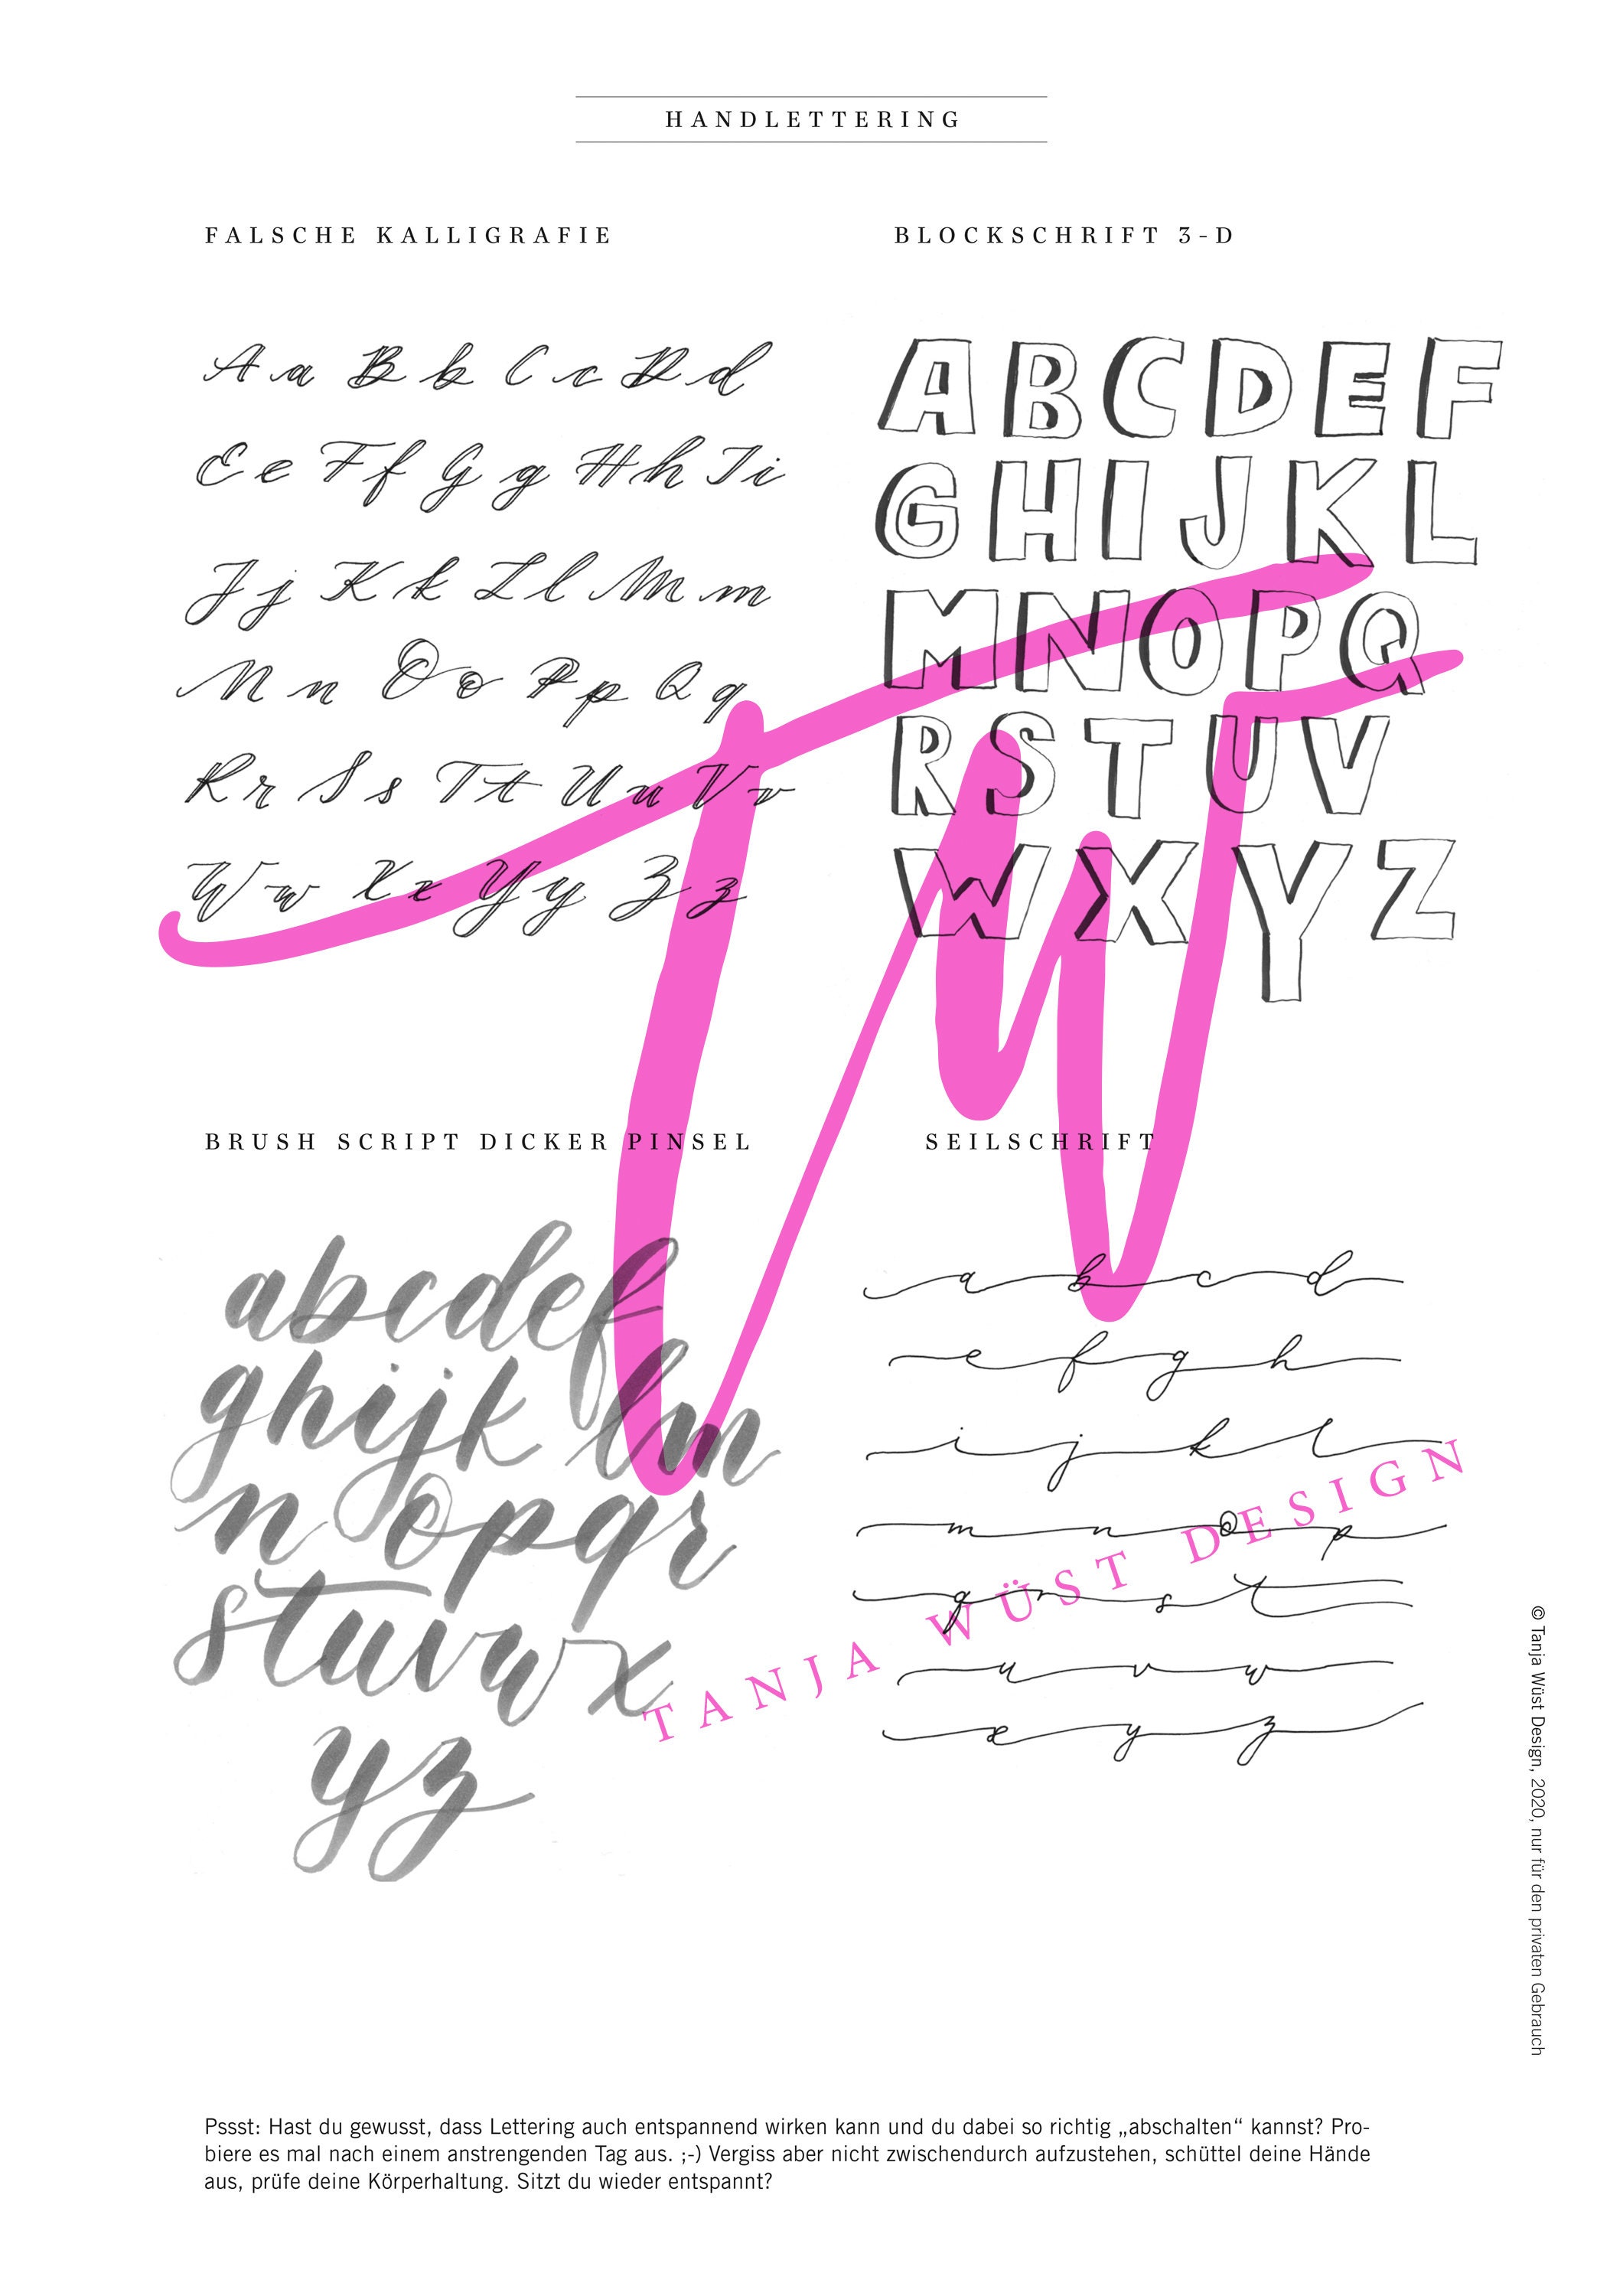 HANDLETTERING
FALSCHE KALLIGRAFIE
A a B b C c D d
E e F f G g H h I i
J j K k L l M m
N n O o P p Q q
R r S s T t U u V v
W w X x Y y Z z
BLOCKSCHRIFT 3-D
A B C D E F
G H I J K L
M N O P Q
R S T U V
W X Y Z
BRUSH SCRIPT DICKER PINSEL
a b c d e f
g h i j k l m
n o p q r
s t u v w x
y z
SEILSCHRIFT
a b c d
e f g h
i j k l
m n o p
q r s t
u v w
x y z
TW
TANJA WÜST DESIGN
© Tanja Wüst Design, 2020, nur für den privaten Gebrauch
Pssst: Hast du gewusst, dass Lettering auch entspannend wirken kann und du dabei so richtig „abschalten“ kannst? Pro-
biere es mal nach einem anstrengenden Tag aus. ;-) Vergiss aber nicht zwischendurch aufzustehen, schüttel deine Hände
aus, prüfe deine Körperhaltung. Sitzt du wieder entspannt?